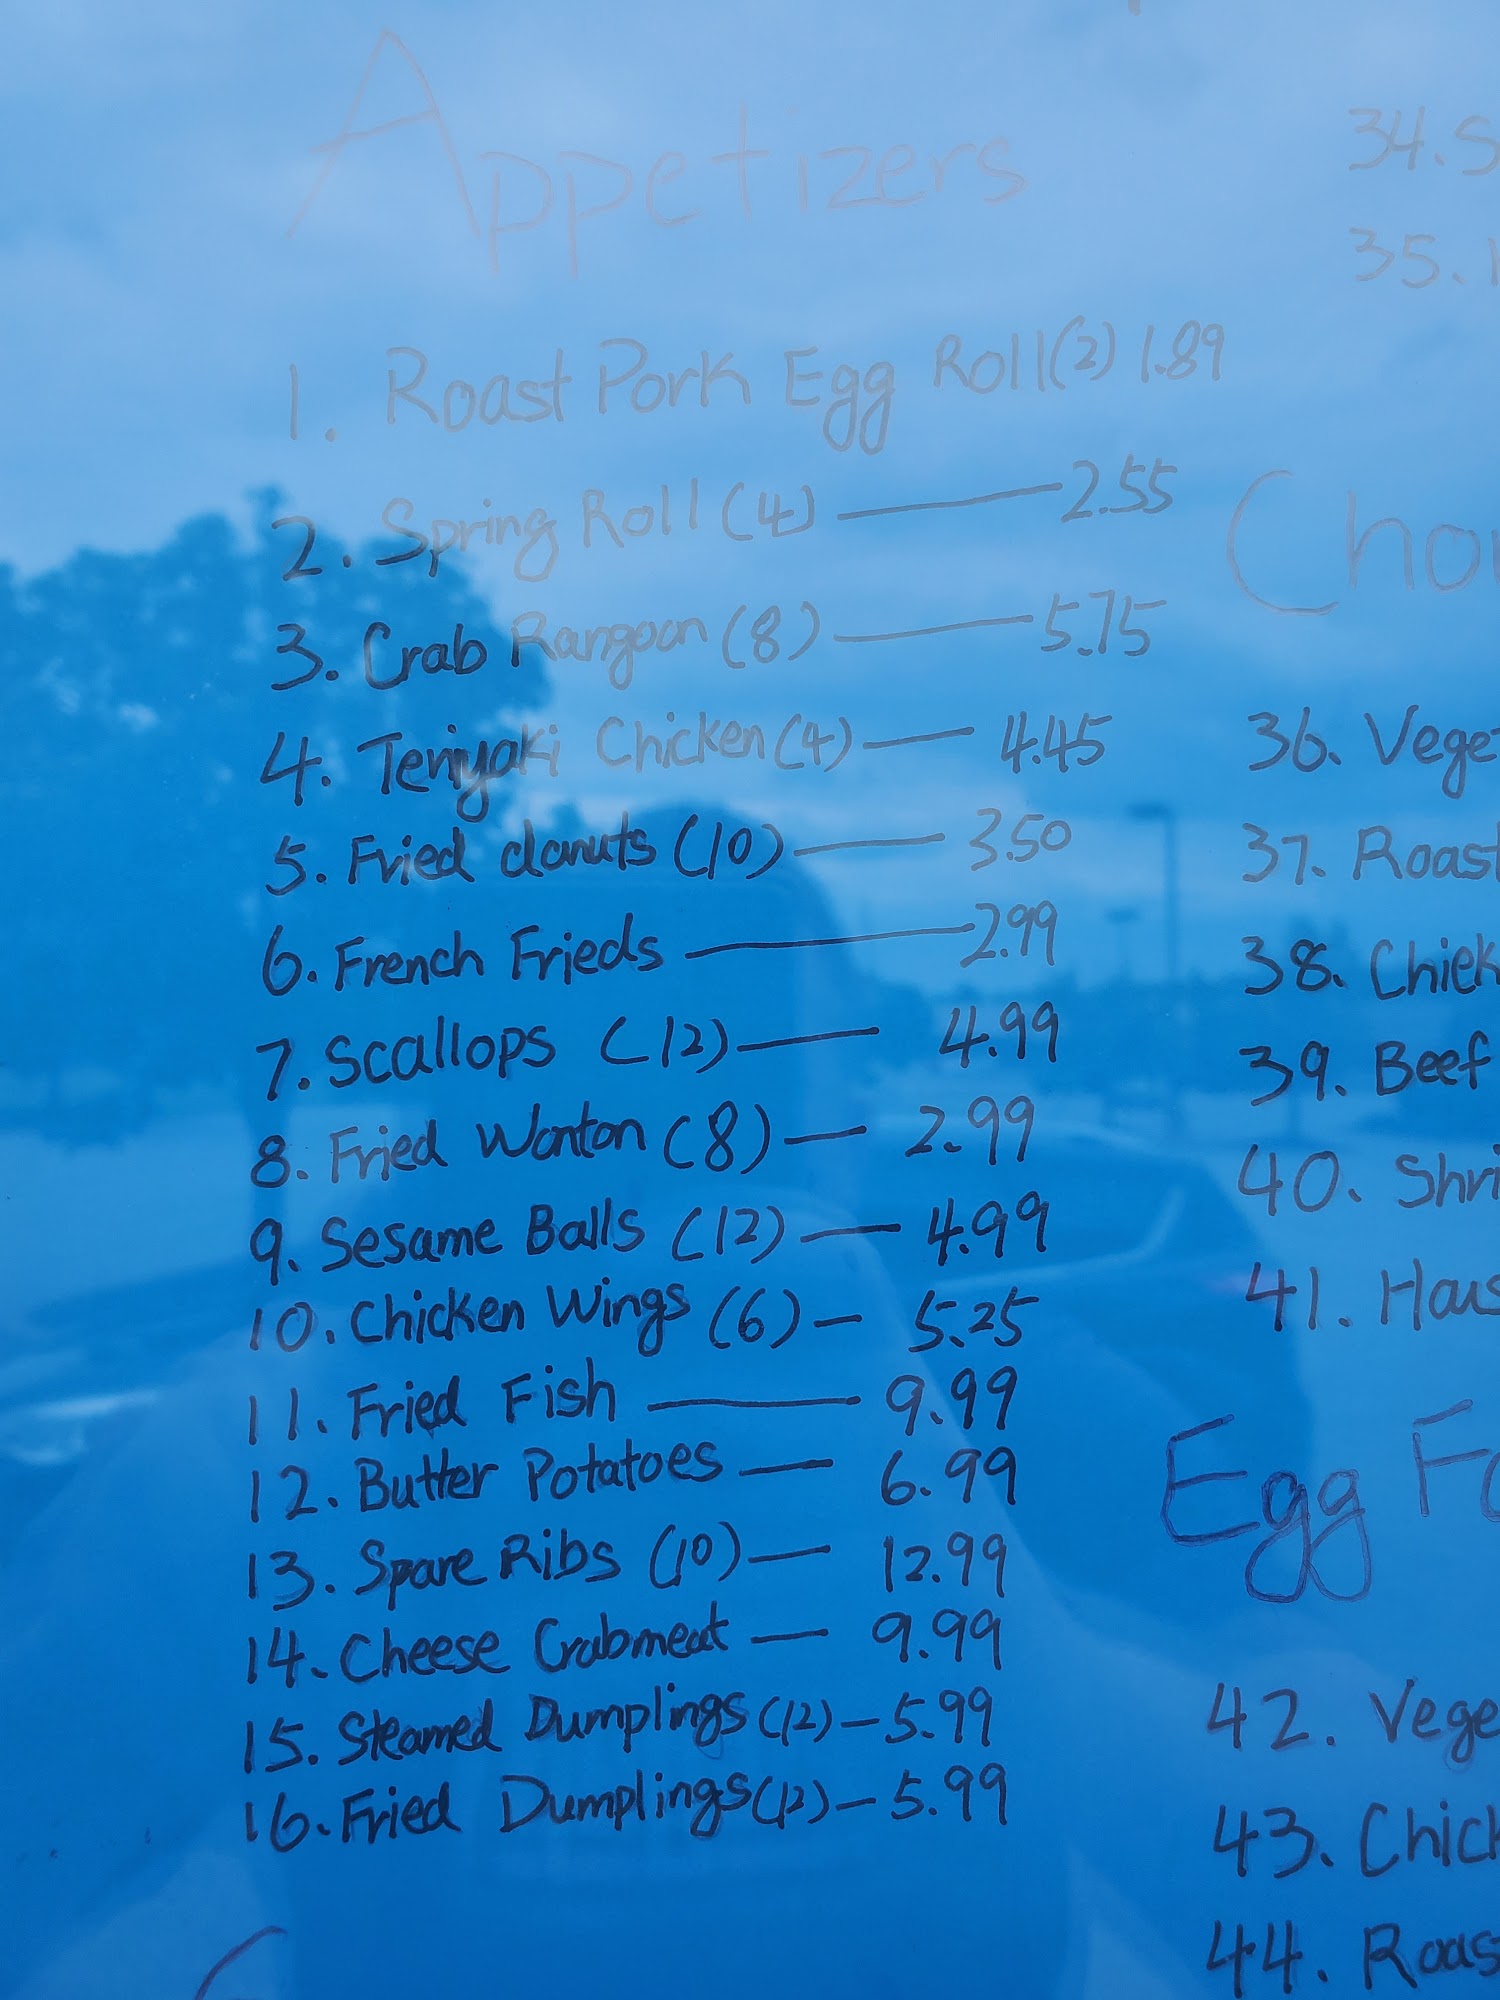 Appetizers
1. Roast Pork Egg Roll (2) 1.89
2. Spring Roll (4) — 2.55
3. Crab Rangoon (8) — 5.75
4. Teriyaki Chicken (4) — 4.45
5. Fried donuts (10) — 3.50
6. French Frieds — 2.99
7. Scallops (12) — 4.99
8. Fried Wonton (8) — 2.99
9. Sesame Balls (12) — 4.99
10. Chicken Wings (6) — 5.25
11. Fried Fish — 9.99
12. Butter Potatoes — 6.99
13. Spare Ribs (10) — 12.99
14. Cheese Crabmeat — 9.99
15. Steamed Dumplings (12) — 5.99
16. Fried Dumplings (12) — 5.99
34. S
35.
Cho
36. Vege
37. Roast
38. Chick
39. Beef
40. Shri
41. Hous
Egg Fo
42. Vege
43. Chick
44. Roas